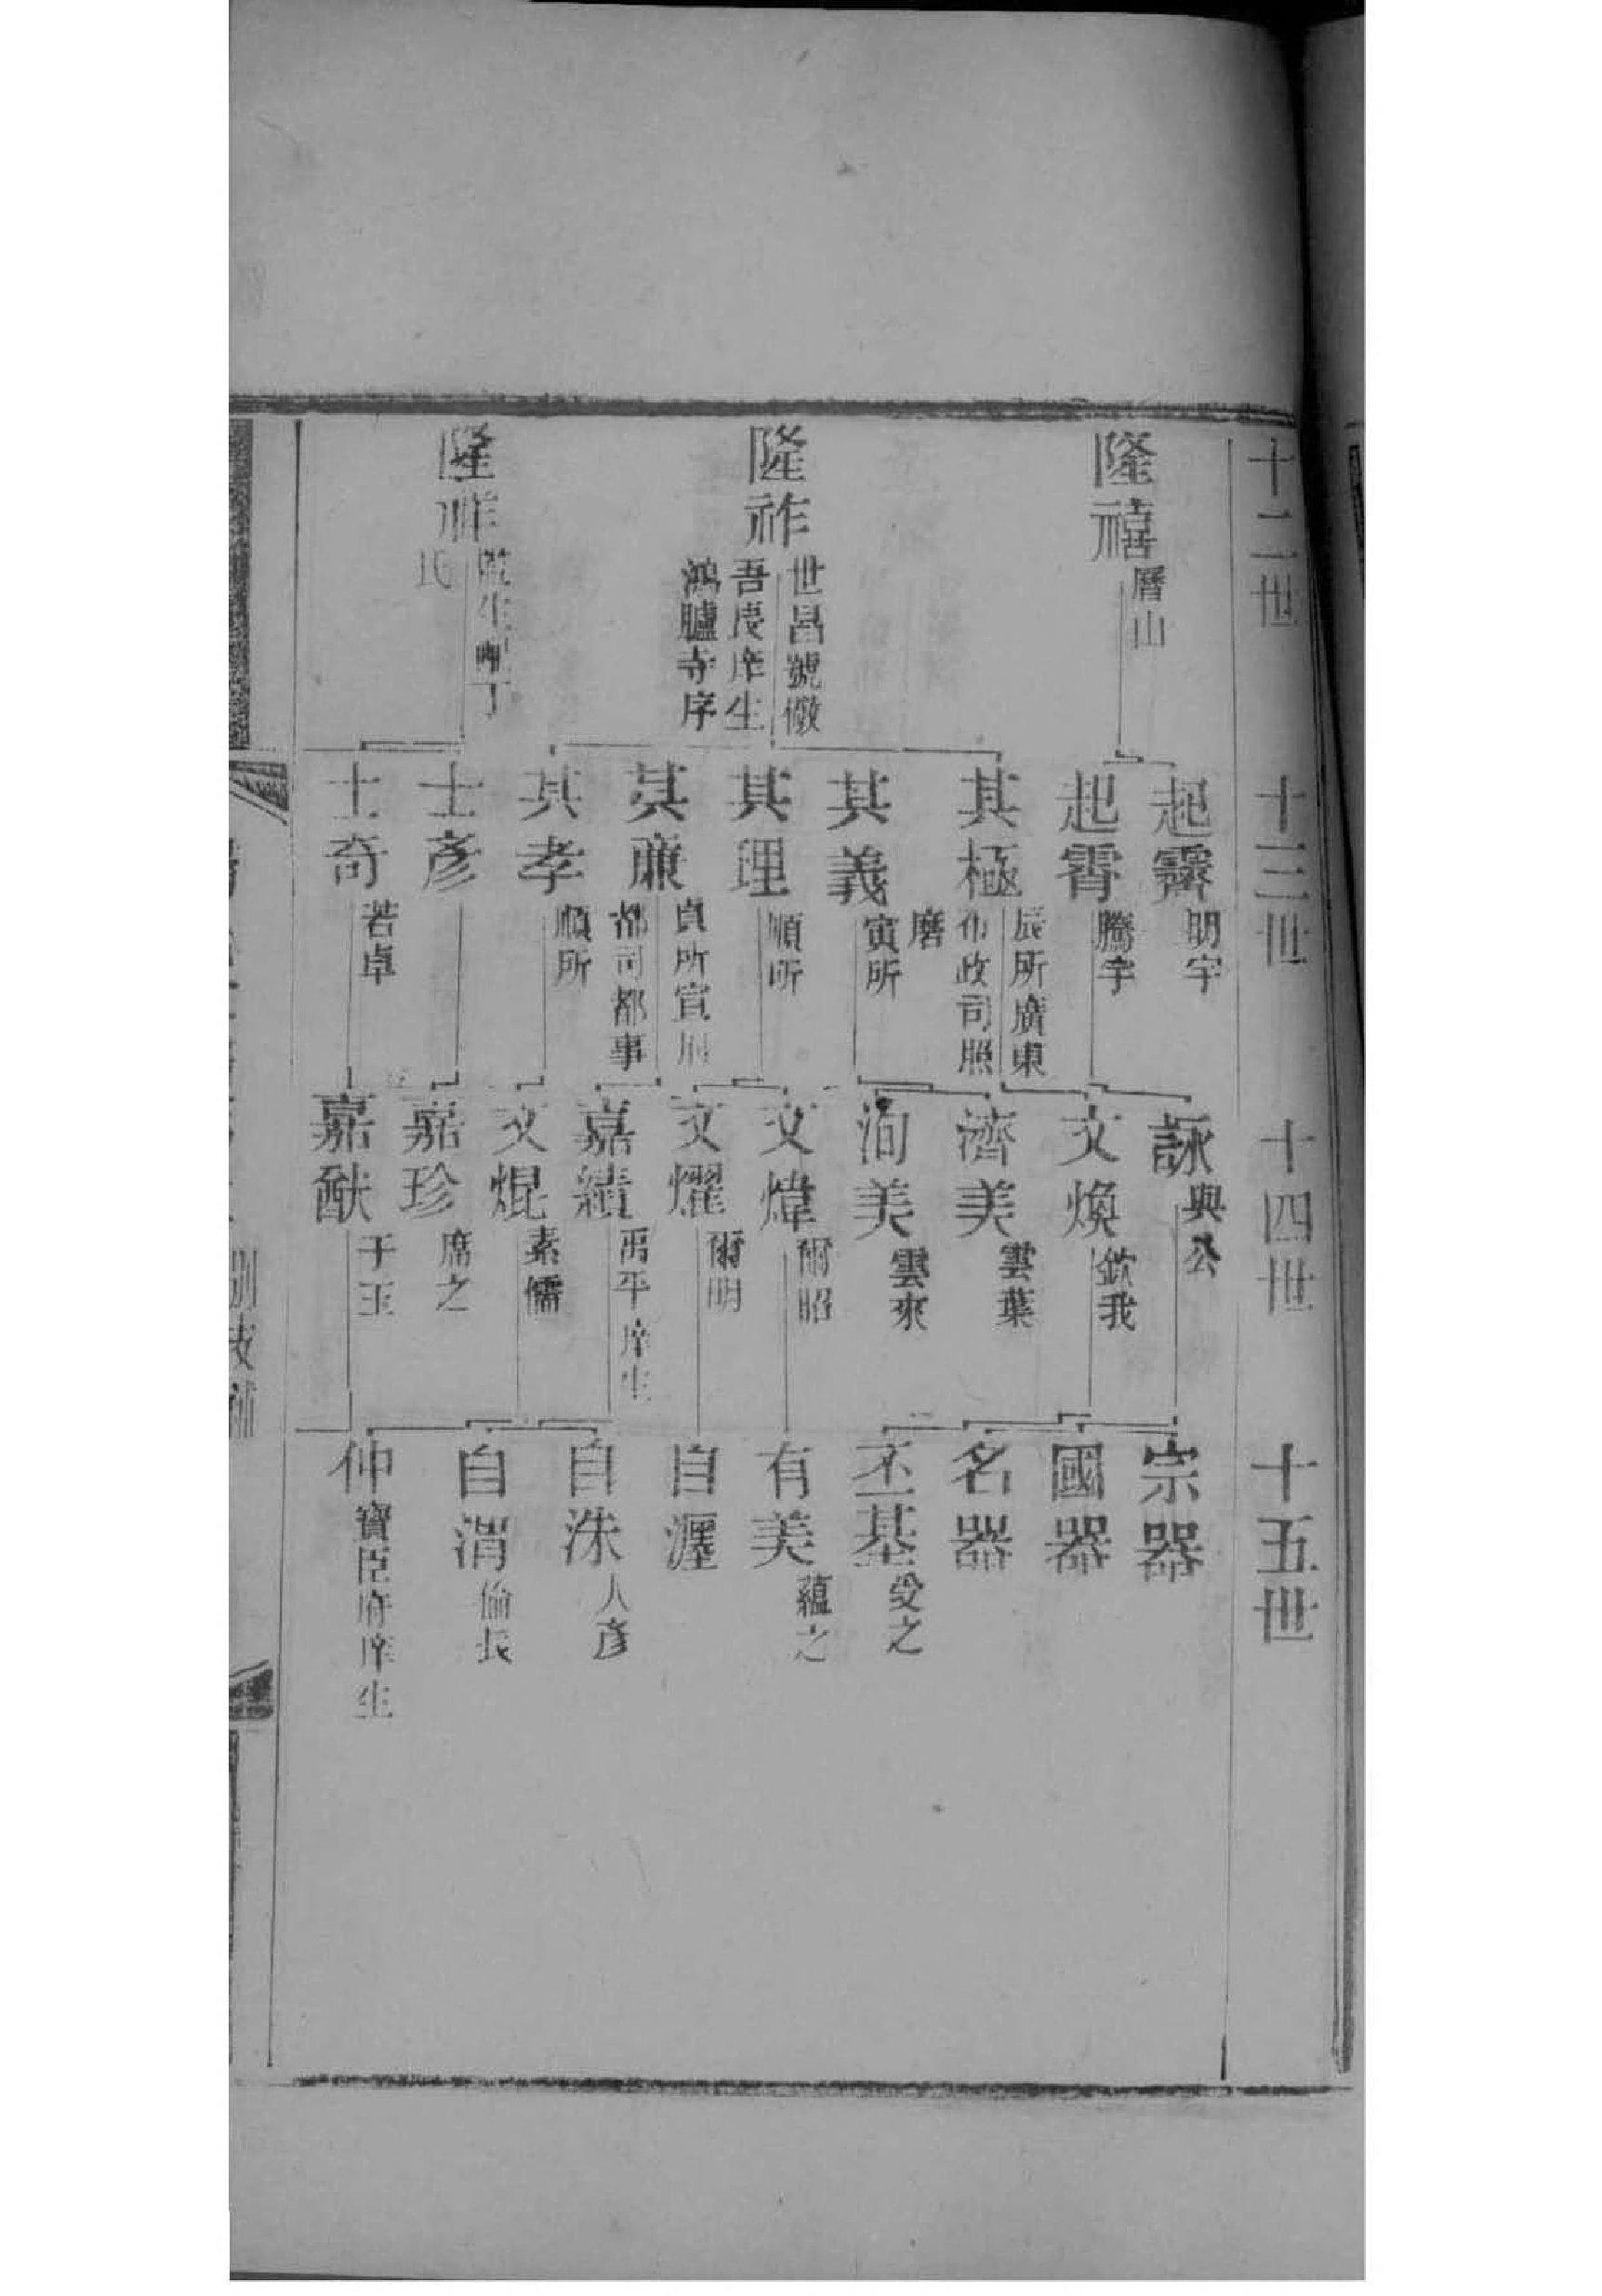 十二世
隆禧
曆山
隆祚
世昌號儆
吾庚庠生
鴻臚寺序
隆祥
監生配丁
氏
十三世
起霽
明宇
起霄
騰宇
其極
辰所廣東
布政司照
磨
其義
寅所
其理
順所
其廉
貞所宣府
都司都事
其孝
順所
士彥
士奇
若卓
十四世
詠
與公
文煥
欽我
濟美
雲葉
洵美
雲來
文煒
爾昭
文燿
爾明
嘉績
禹平庠生
文焜
素儒
嘉珍
席之
嘉猷
十五世
宗器
國器
名器
丕基
受之
有美
蘊之
自渥
自洙
人彥
自涓
倫長
仲
寶臣府庠生